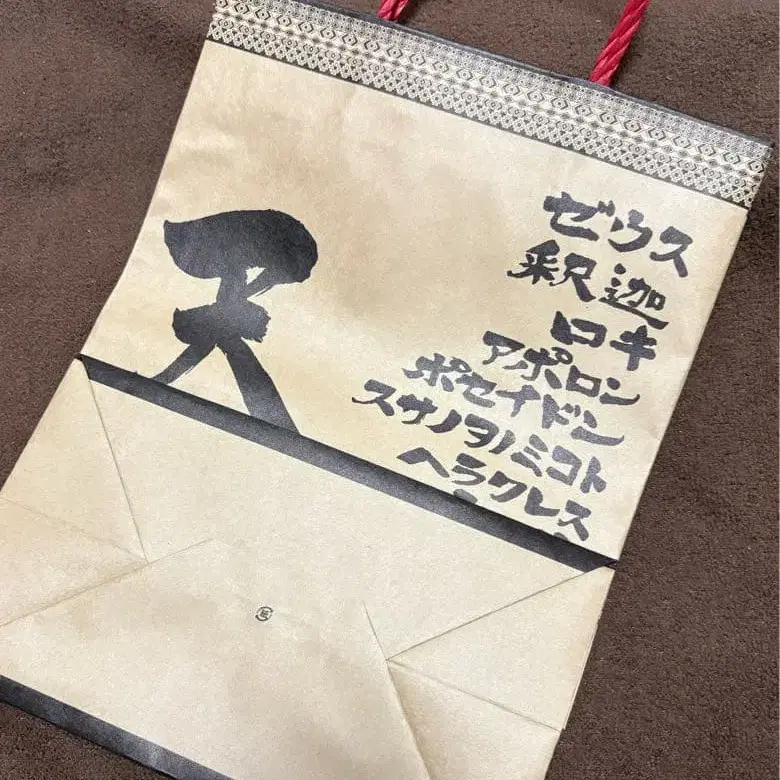 天
ゼウス
釈迦
ロキ
アポロン
ポセイドン
スサノヲノミコト
ヘラクレス